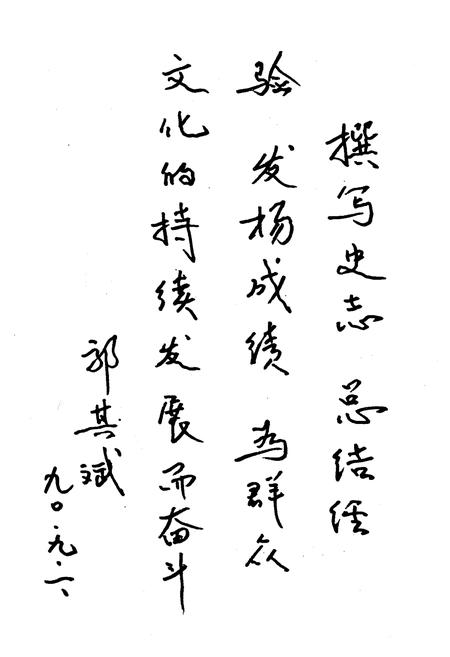 撰写史志 总结经
验 发杨成绩 为群众
文化的持续发展而奋斗
郭其斌
九〇.九.一、